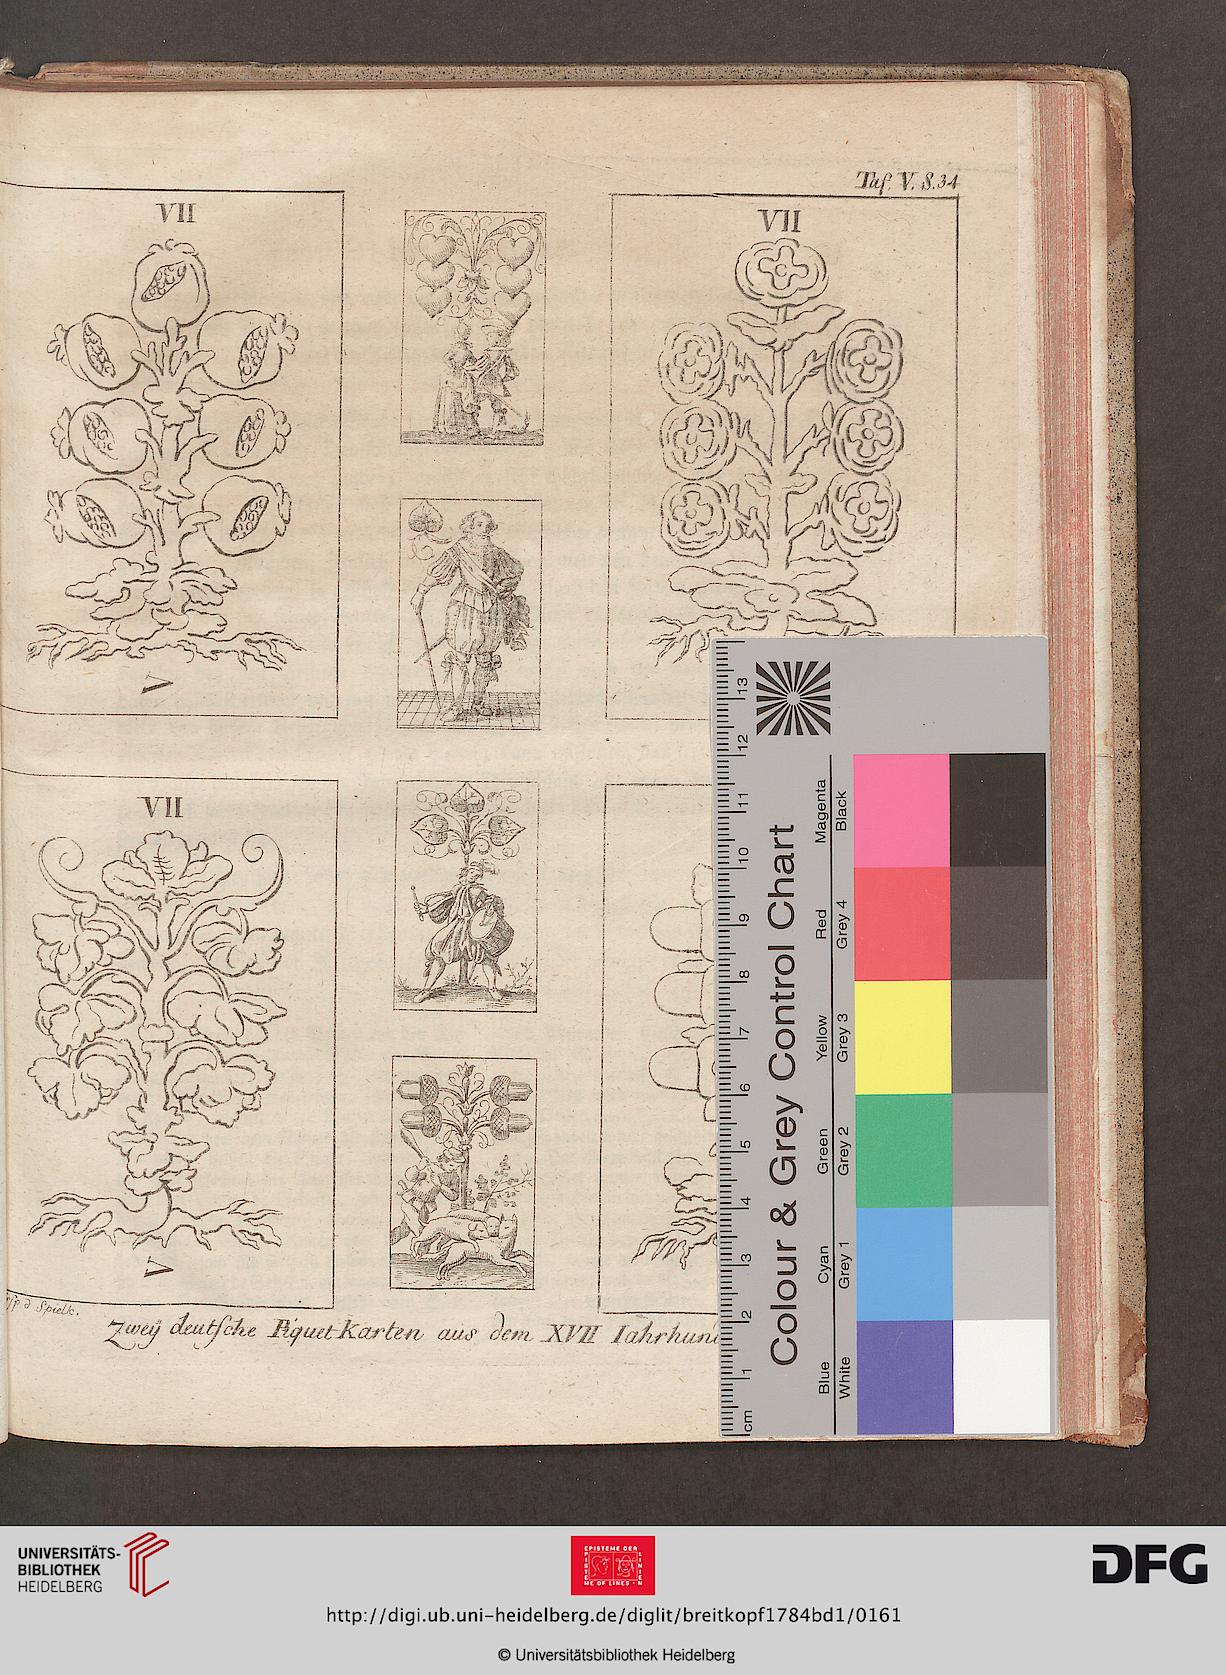 Taf. V. S. 34
VII
VII
V
VII
V
d Spielk.
Zweÿ deutsche Piquet-Karten aus dem XVII Iahrhun
13
12
11
10
9
8
7
6
5
4
3
2
1
cm
Colour & Grey Control Chart
Blue Cyan Green Yellow Red Magenta
White Grey 1 Grey 2 Grey 3 Grey 4 Black
UNIVERSITÄTS-
BIBLIOTHEK
HEIDELBERG
EPISTEME DER
LINIEN
EPISTE
ME OF LINES
DFG
http://digi.ub.uni-heidelberg.de/diglit/breitkopf1784bd1/0161
© Universitätsbibliothek Heidelberg